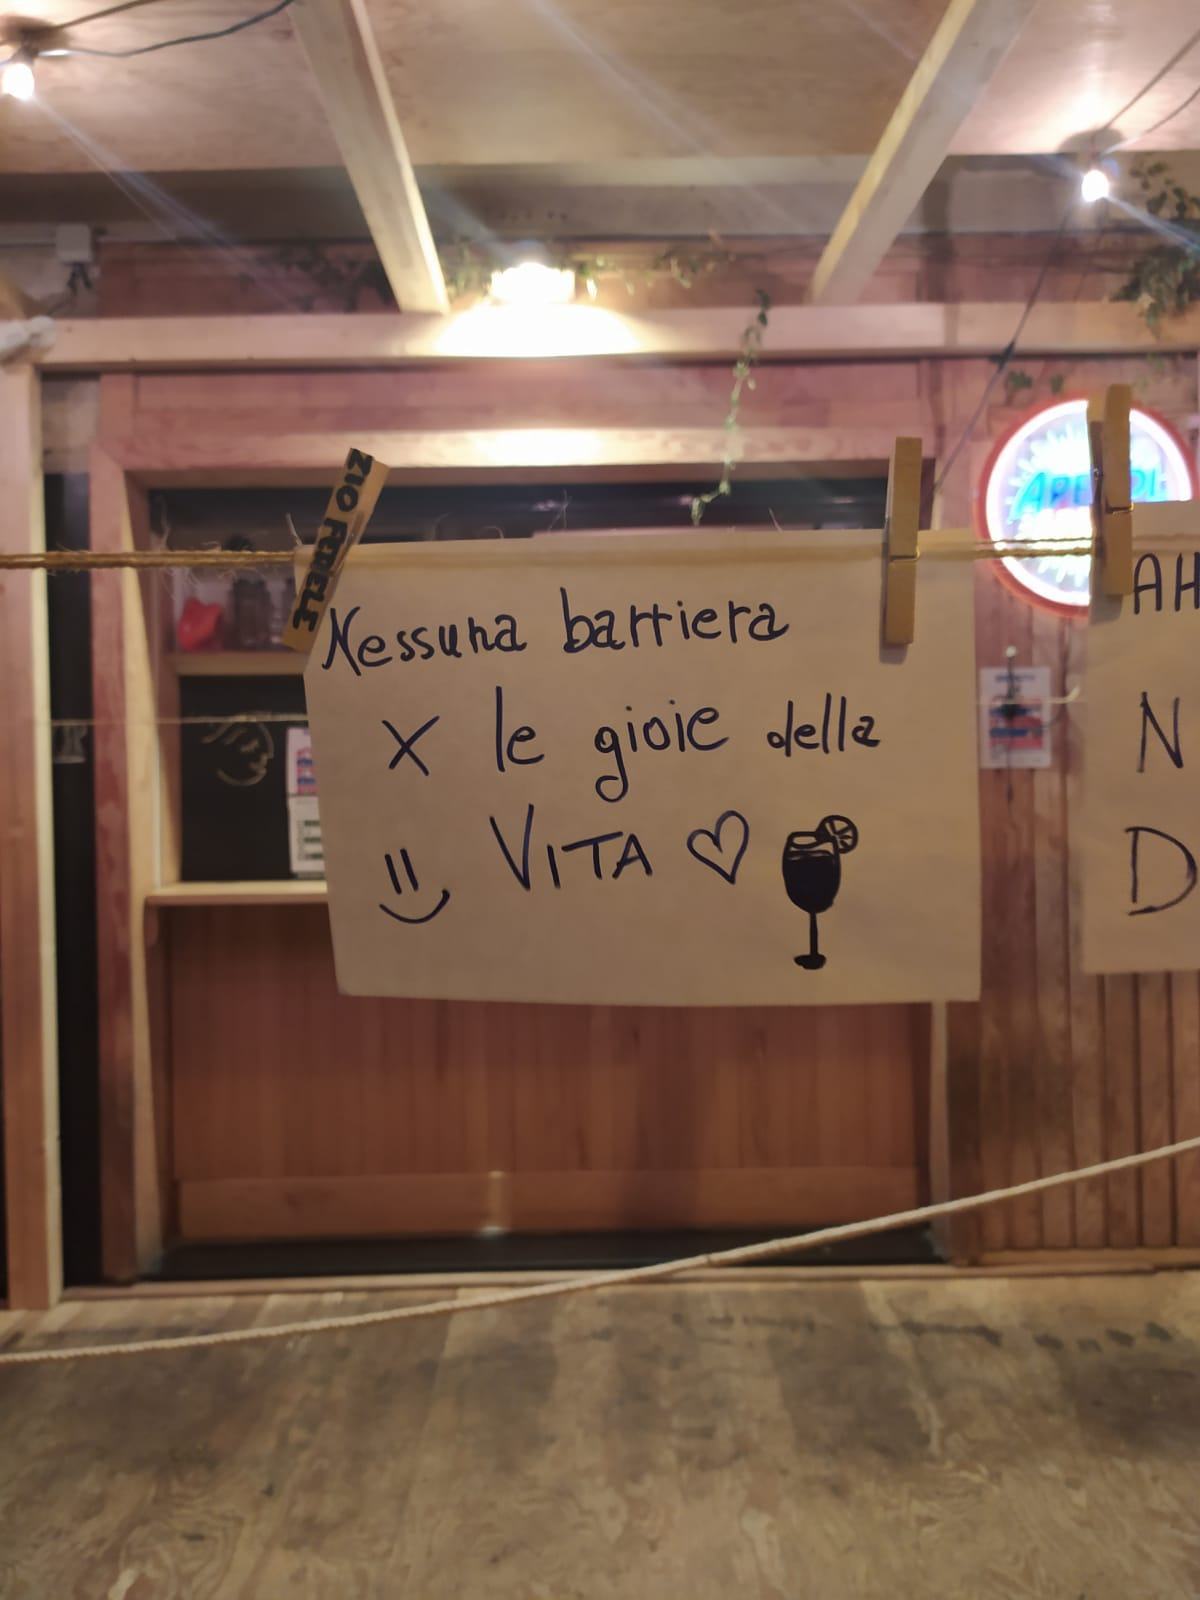 ZIO FEDELE
Nessuna barriera
X le gioie della
VITA
AH
N
D